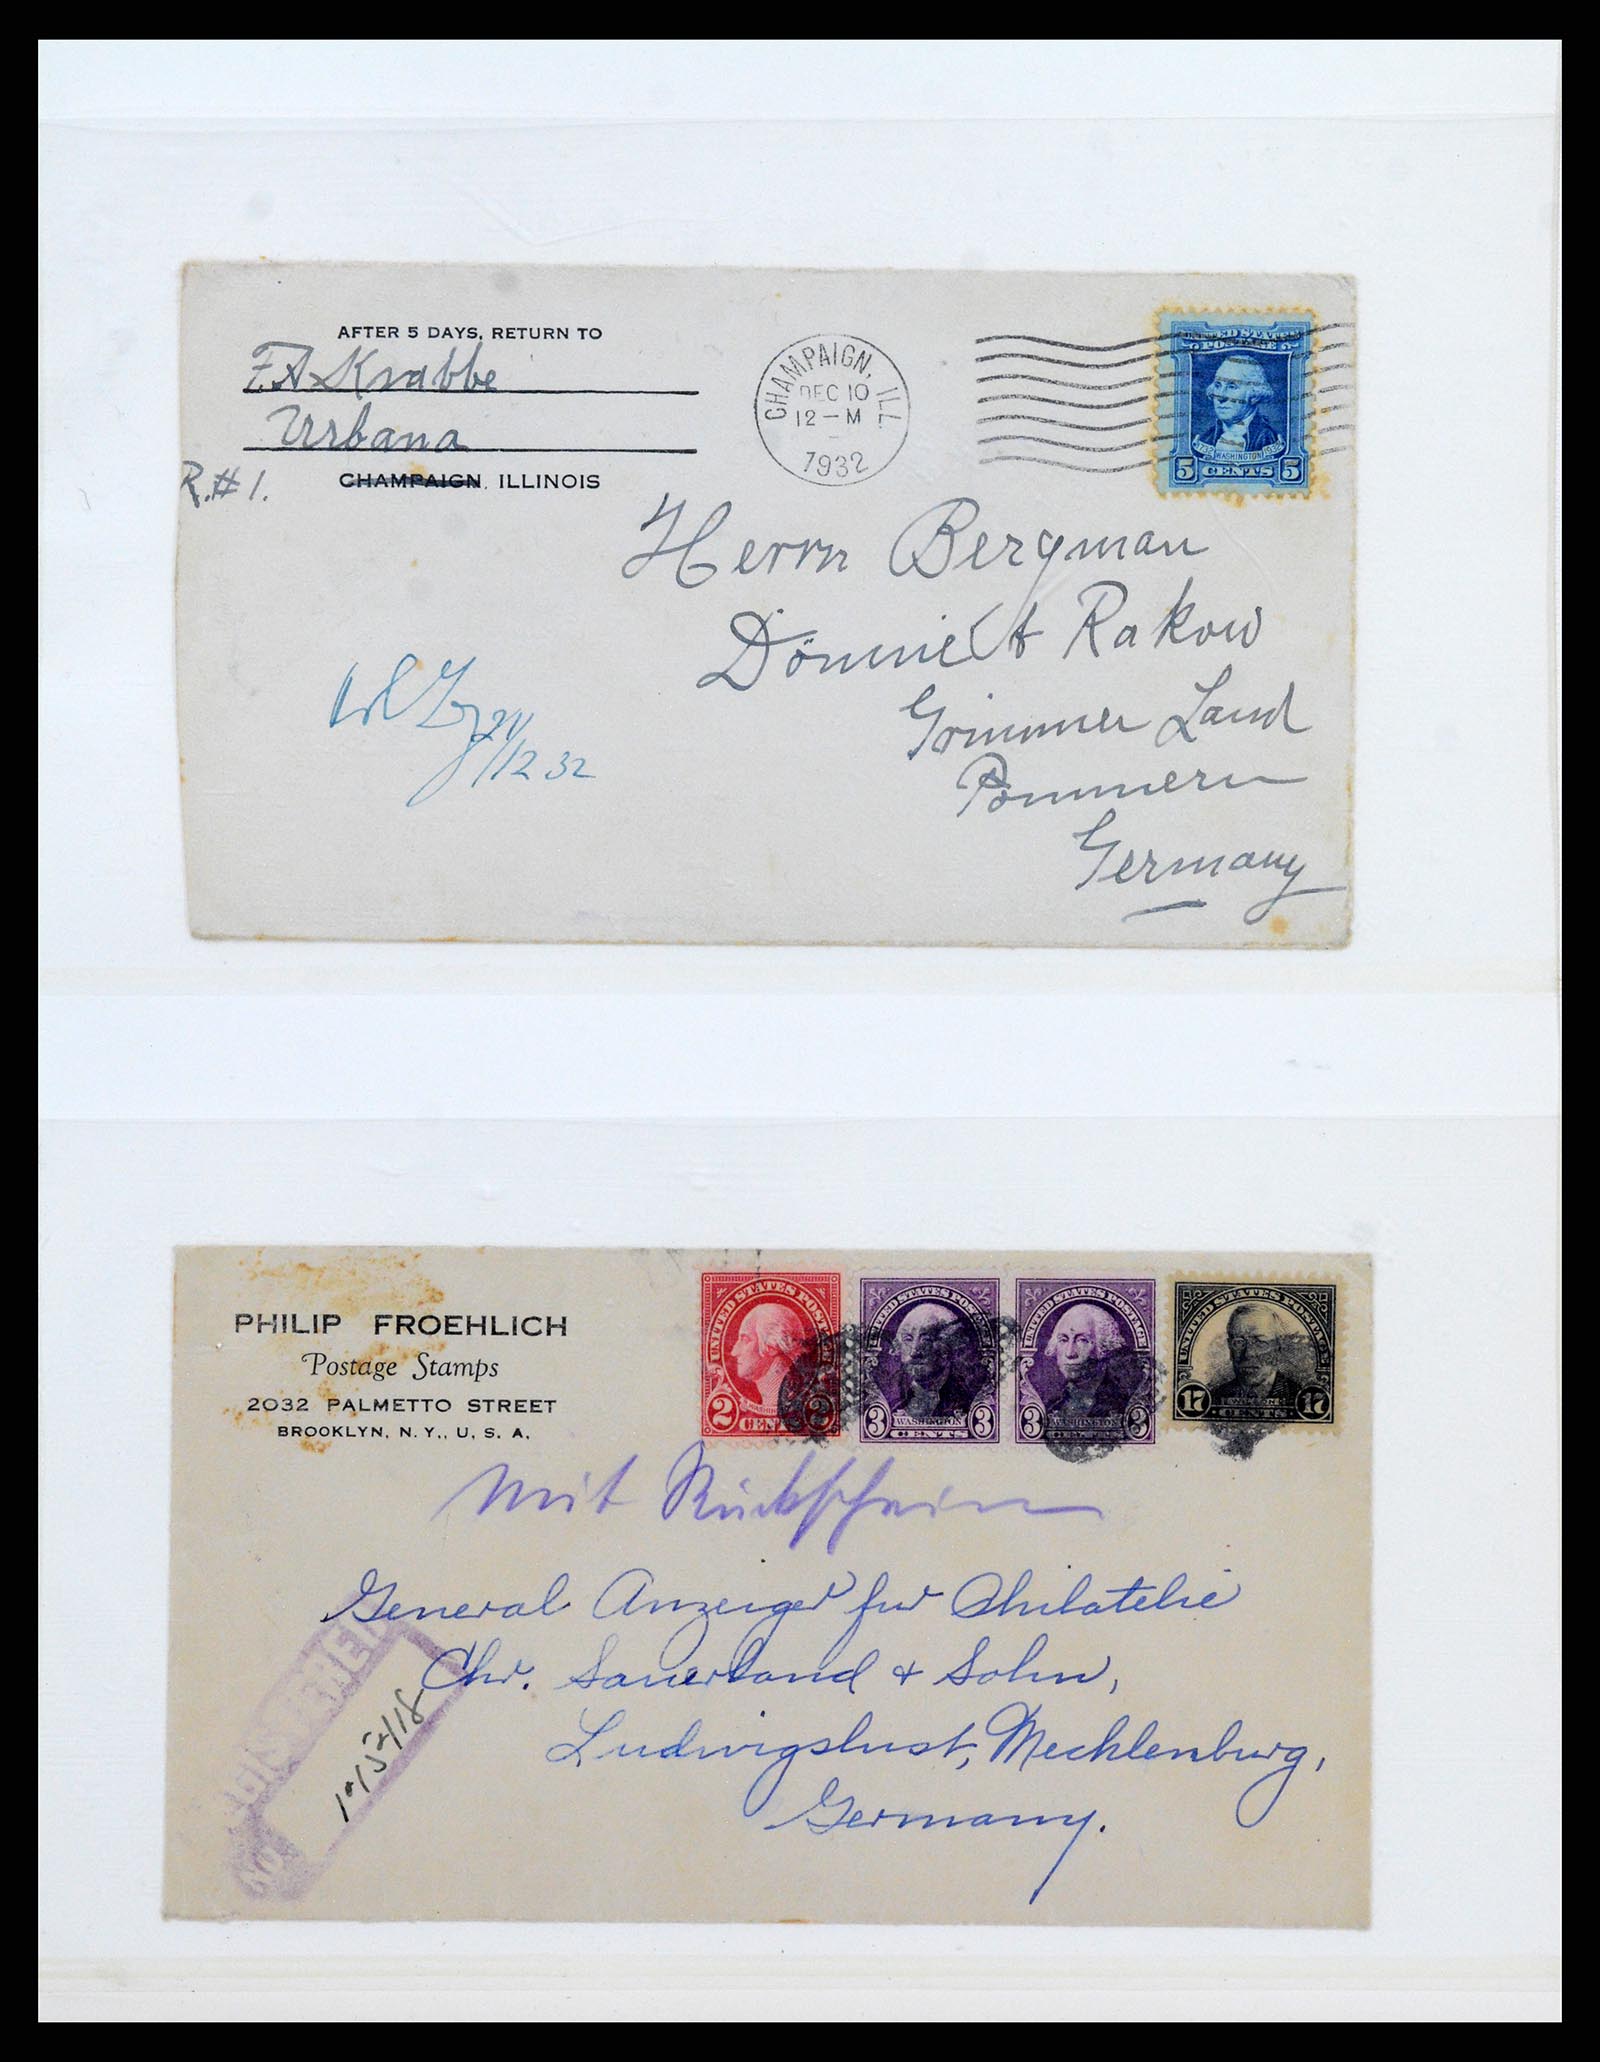 AFTER 5 DAYS, RETURN TO
F.A Krabbe
Urbana
R.#1. CHAMPAIGN, ILLINOIS
CHAMPAIGN, ILL.
DEC 10
12—M
1932
UNITED STATES
POSTAGE
1732 WASHINGTON 1932
5 CENTS 5
Herrn Bergman
Rakow
Grimmer Land
Pommern
Germany
21/12 32
PHILIP FROEHLICH
Postage Stamps
2032 PALMETTO STREET
BROOKLYN, N. Y., U. S. A.
UNITED STATES POSTAGE
2 CENTS 2
UNITED STATES POSTAGE
WASHINGTON
3 CENTS 3
UNITED STATES POSTAGE
WASHINGTON
3 CENTS 3
UNITED STATES POSTAGE
17 CENTS 17
mit Rückschein
General Anzeiger fur Philatelie
Chr. Sauerland & Sohn,
Ludwigslust, Mecklenburg,
Germany.
REGISTERED
NO